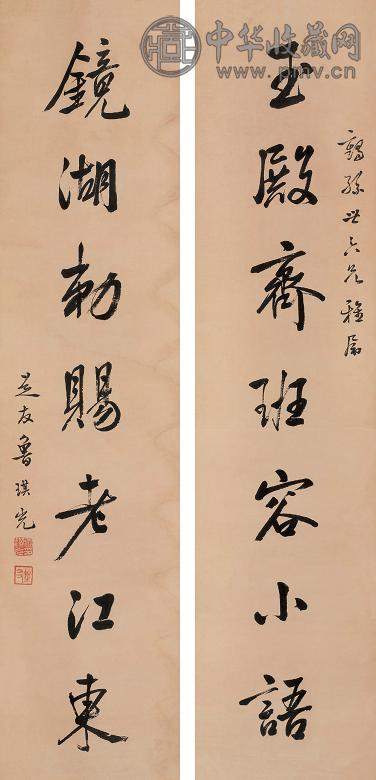 中华收藏网
www.pmv.cn
鶴孫世六兄雅屬
玉殿齊班容小語
鏡湖勅賜老江東
芝友魯琪光